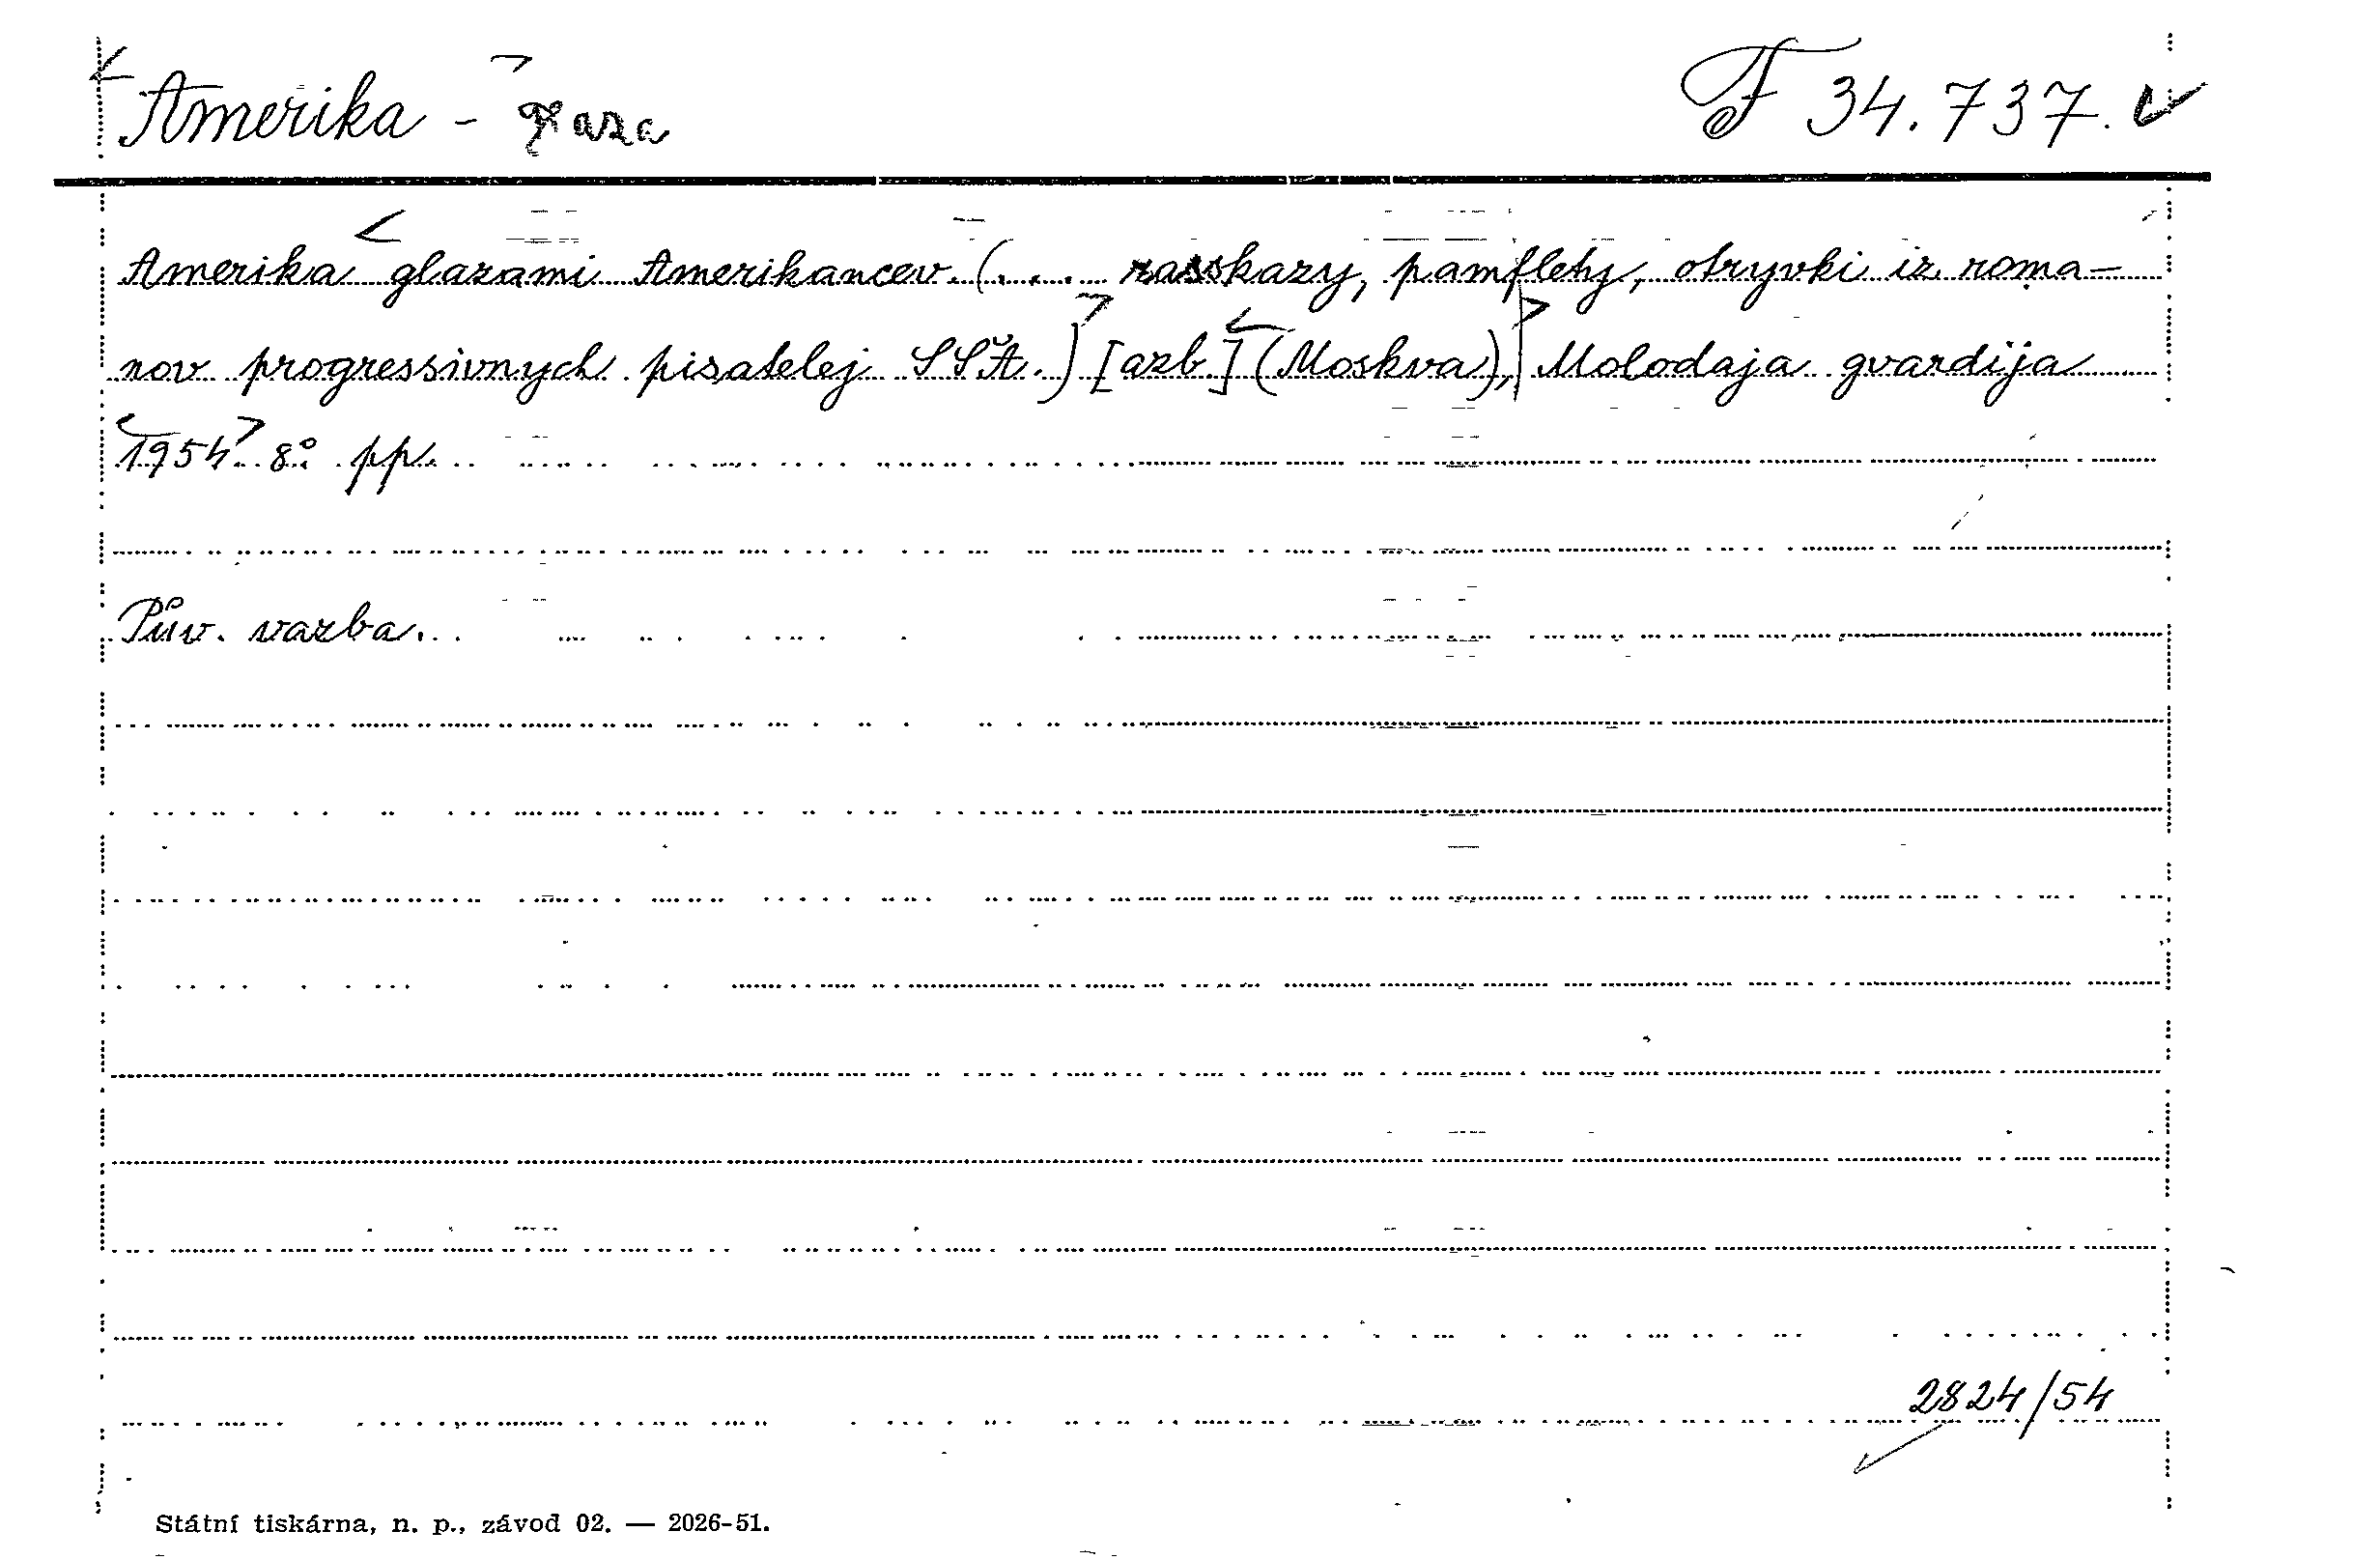 Amerika - F 34.737.
Amerika glazami Amerikancev. (.... rasskazy, pamflety, otryvki iz roma-
nov progressivnych pisatelej SŠA.) [azb.] (Moskva), Molodaja gvardija
1954. 8° pp.
Pův. vazba.
2824/54
Státní tiskárna, n. p., závod 02. — 2026-51.